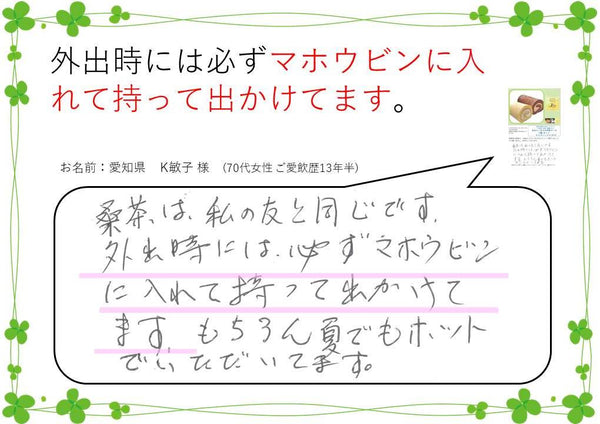 外出時には必ずマホウビンに入
れて持って出かけてます。
お名前：愛知県　K敏子 様　(70代女性 ご愛飲歴13年半)
桑茶は、私の友と同じです。
外出時には、必ずマホウビン
に入れて持って出かけて
ます。もちろん夏でもホット
でいただいてます。